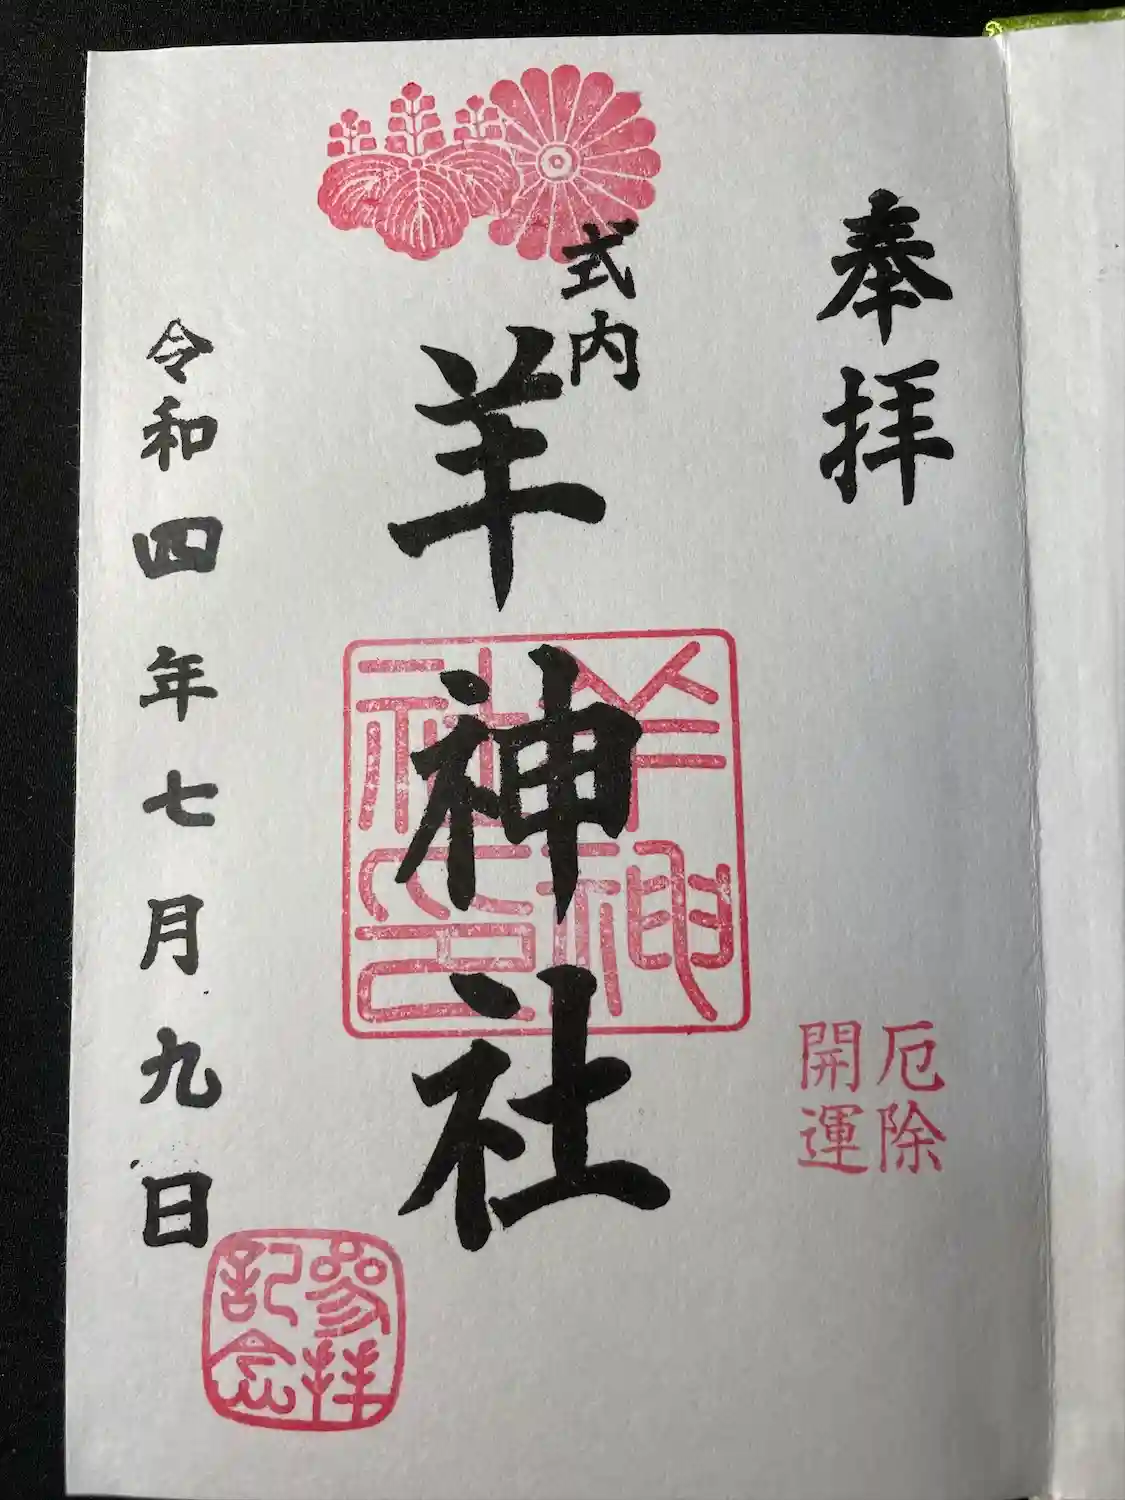 奉拝
厄除
開運
式内
羊神社
羊神
社印
令和四年七月九日
參拝
記念